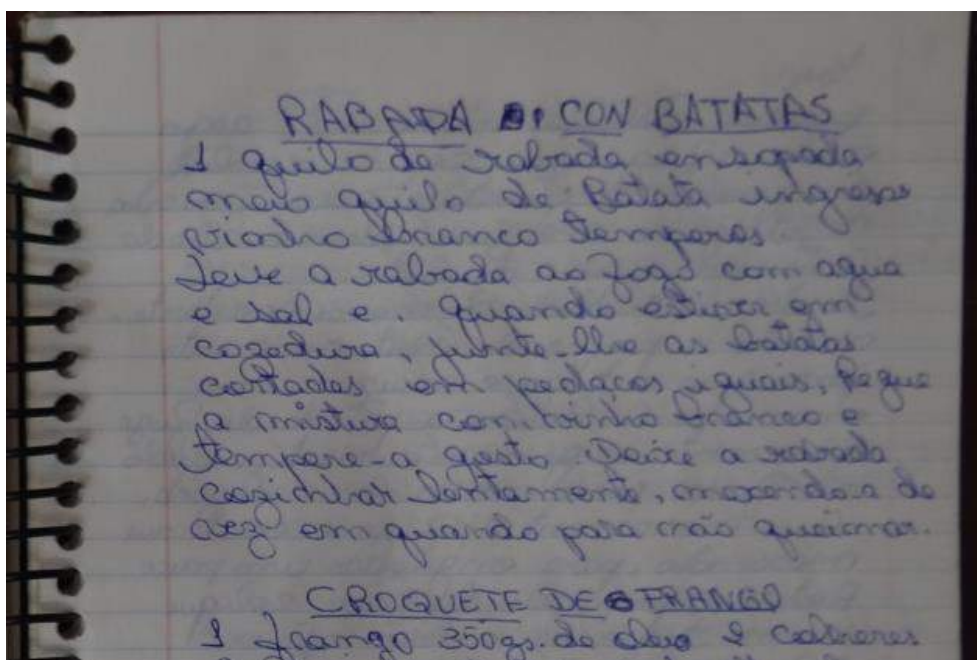 RABADA CON BATATAS
1 quilo de rabada ensopada
meio quilo de Batata ingresas
vionho branco temperos
Leve a rabada ao fogo com agua
e sal e. quando estiver em
cozedura, junte-lhe as batatas
cortadas em pedaços iguais, Regue
a mistura com vinho branco e
tempere-a gosto. Deixe a rabada
cozinhar lentamente, mexendo-a de
vez em quando para não queimar.
CROQUETE DE FRANGO
1 frango 350gs. de 2 colheres